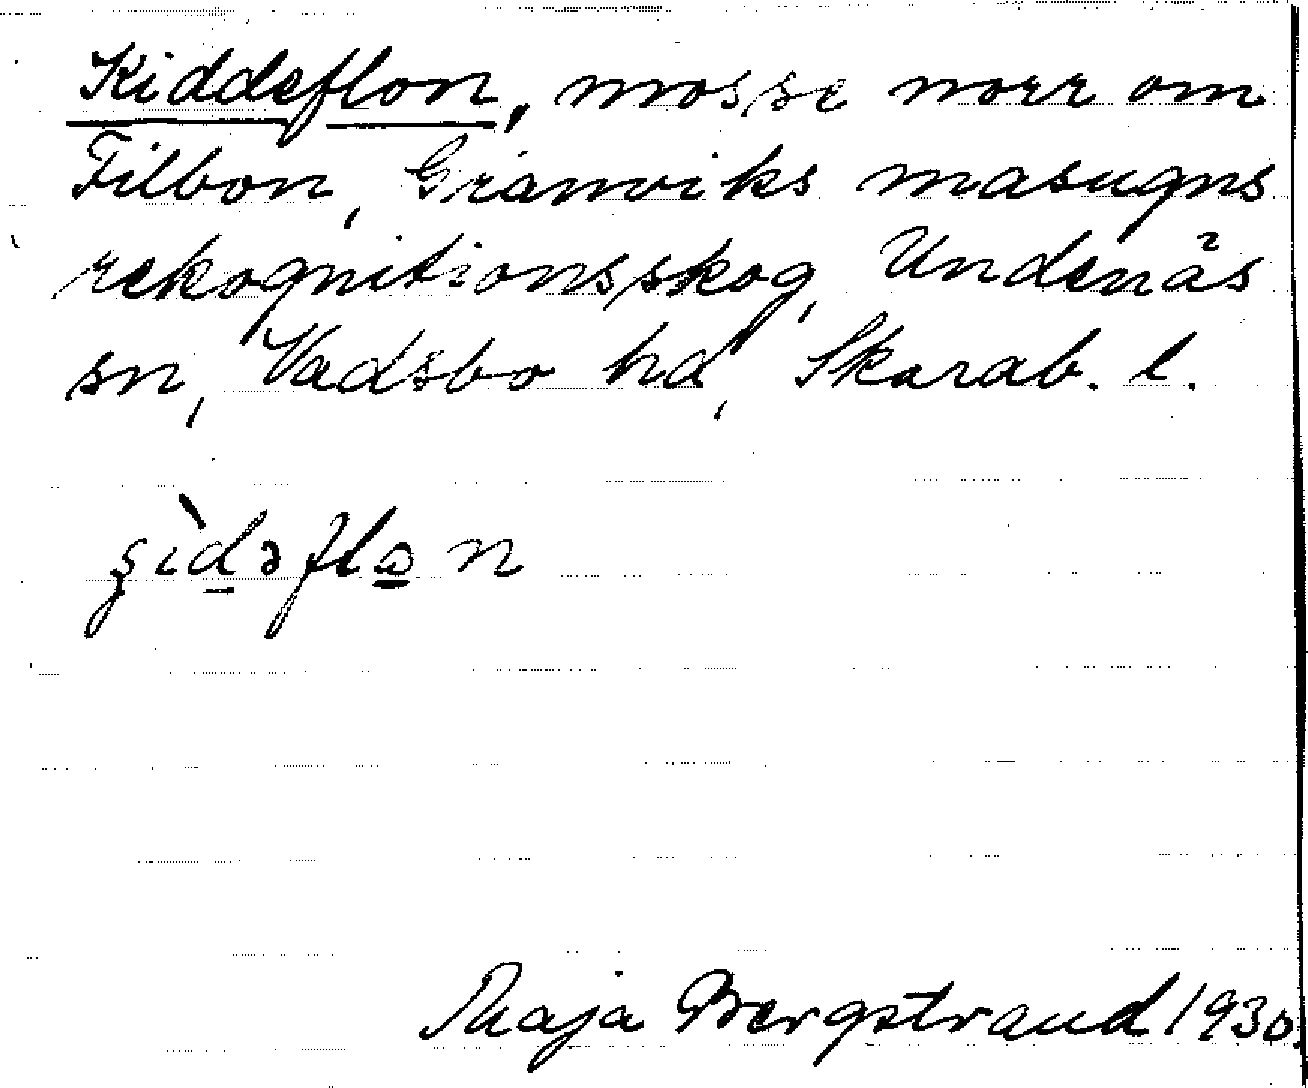 Kiddeflon, mosse norr om
Filbon, Granviks masugns
rekognitionsskog, Undenäs
sn, Vadsbo hd, Skarab. l.
Maja Bergstrand 1930.